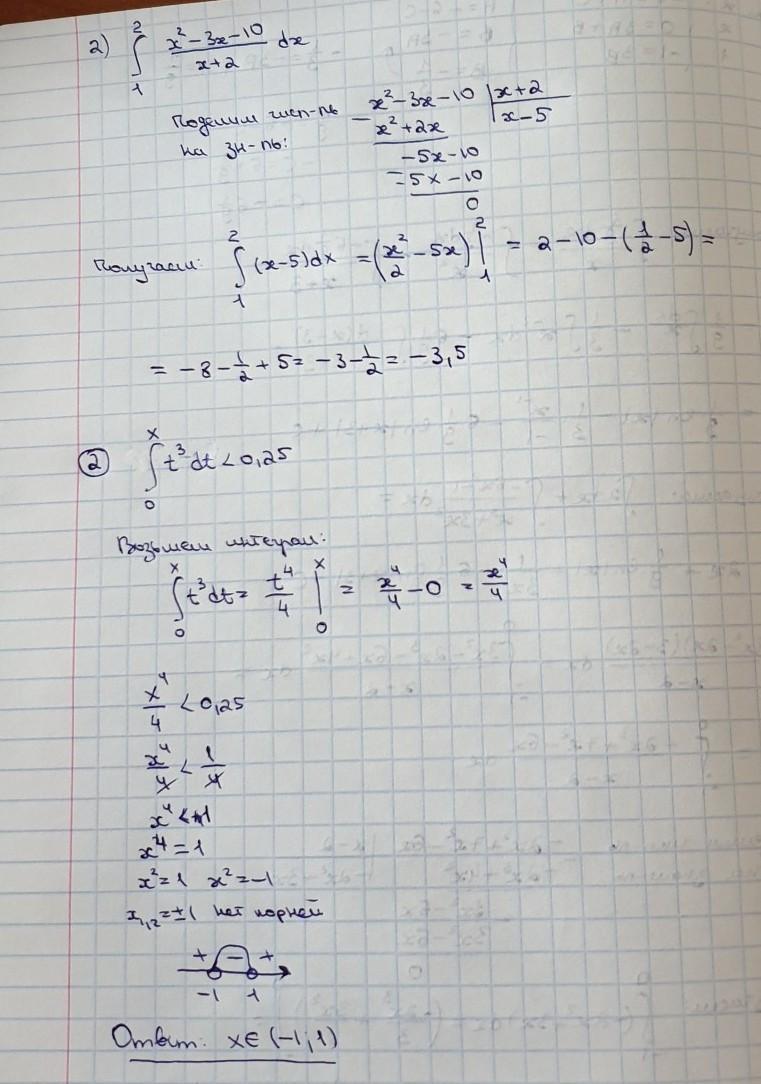 2) ∫₁² (x²-3x-10)/(x+2) dx
Поделим числ-ль
на зн-ль:
x²-3x-10 | x+2
x²+2x | x-5
-5x-10
-5x-10
0
Получаем: ∫₁² (x-5)dx = (x²/2 - 5x)|₁² = 2-10-(1/2-5) =
= -8-1/2+5 = -3-1/2 = -3,5
② ∫₀ˣ t³dt < 0,25
Возьмем интеграл:
∫₀ˣ t³dt = t⁴/4 |₀ˣ = x⁴/4 - 0 = x⁴/4
x⁴/4 < 0,25
x⁴/4 < 1/4
x⁴ < 1
x⁴ = 1
x²=1 x²=-1
x₁,₂=±1 нет корней
+ - +
-1 1
Ответ: x∈(-1;1)